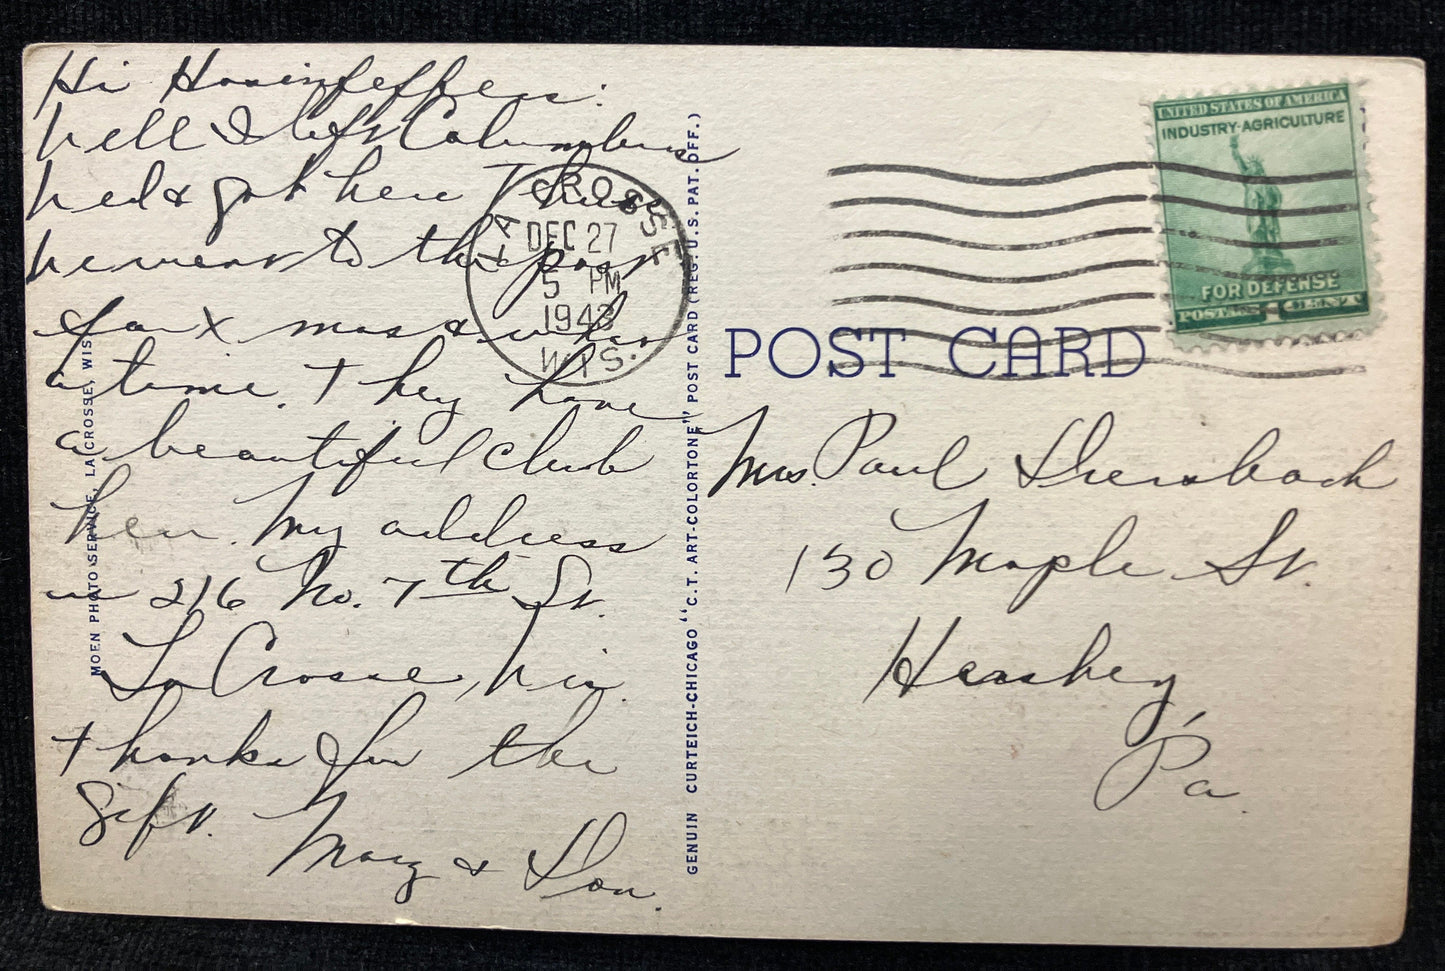 Hi
Well I left Columbus
Wed & got here Thurs
We went to the post
for X mas & what
a time. They have
a beautiful club
here. My address
is 216 No. 7th St.
La Crosse, Wis.
Thanks for the
Gift.
Mary & Don.
MOEN PHOTO SERVICE, LA CROSSE, WIS.
LA CROSSE
DEC 27
5 PM
1943
WIS.
GENUIN CURTEICH-CHICAGO "C.T. ART-COLORTONE" POST CARD (REG. U.S. PAT. OFF.)
UNITED STATES OF AMERICA
INDUSTRY-AGRICULTURE
FOR DEFENSE
POSTAGE 1 CENT
POST CARD
Mrs. Paul
130 Maple St.
Hershey,
Pa.